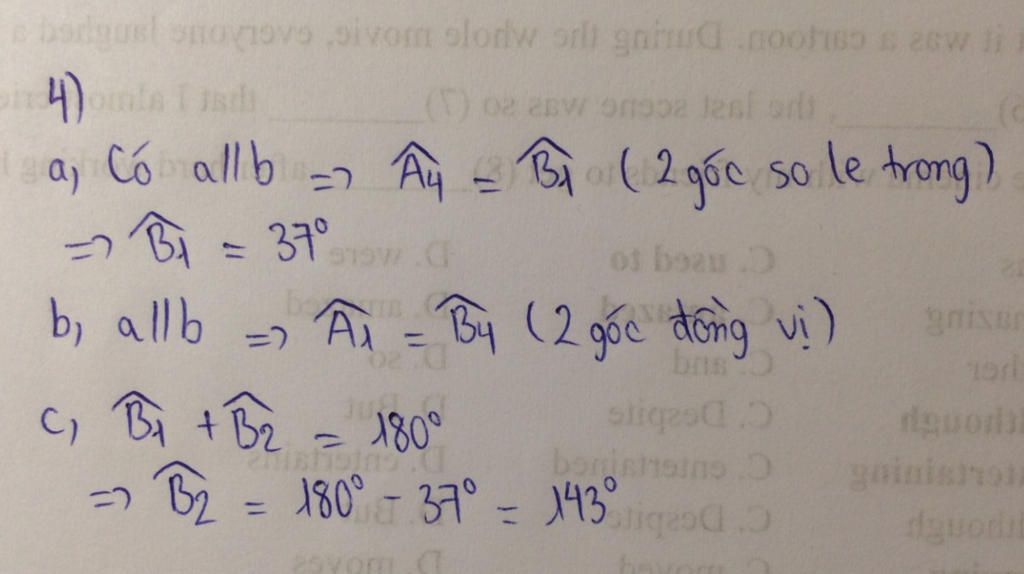 4)
a, Có a//b => Â4 = B̂1 (2 góc so le trong)
=> B̂1 = 37°
b, a//b => Â1 = B̂4 (2 góc đồng vị)
c, B̂1 + B̂2 = 180°
=> B̂2 = 180° - 37° = 143°